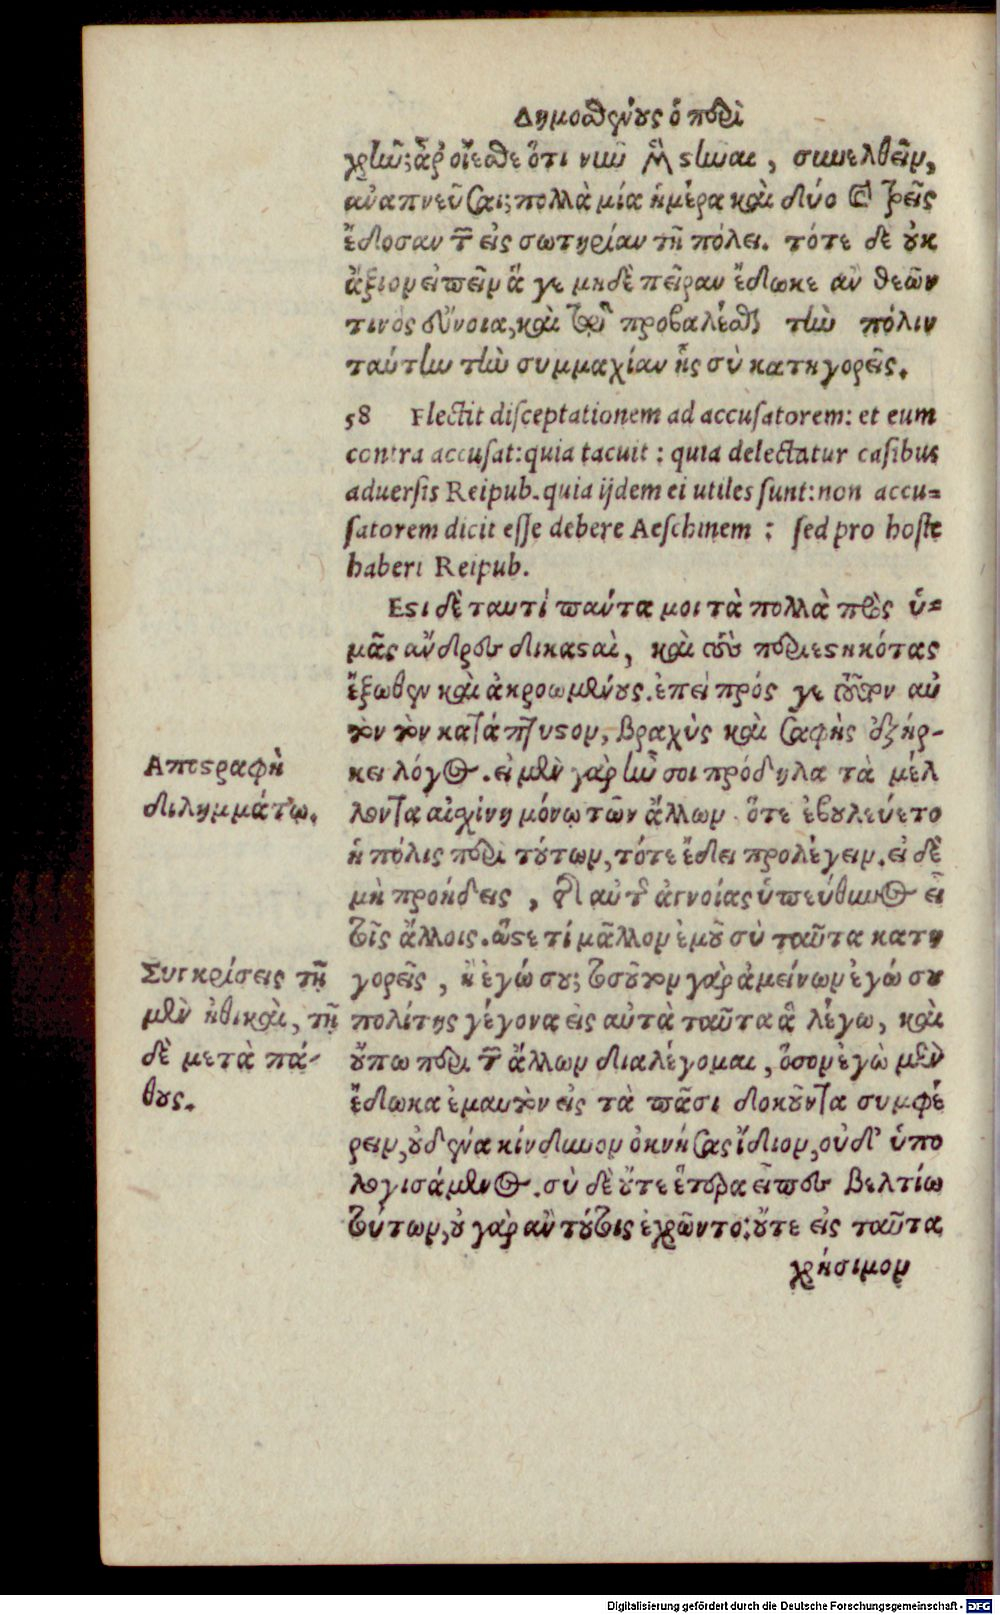 Δημοσθένους ὁ περὶ
χρῆν; ἆρ' οἴεσθε ὅτι νῦν μὲν στῆναι, συνελθεῖν,
ἀναπνεῦσαι; πολλὰ μία ἡμέρα καὶ δύο καὶ τρεῖς
ἔδοσαν τῶν εἰς σωτηρίαν τῇ πόλει. τότε δὲ οὐκ
ἄξιον εἰπεῖν ἅ γε μηδὲ πεῖραν ἔδωκε ἂν θεῶν
τινὸς εὔνοια, καὶ τῷ προβαλέσθαι τὴν πόλιν
ταύτην τὴν συμμαχίαν ἧς σὺ κατηγορεῖς.
58 Flectit disceptationem ad accusatorem: et eum
contra accusat: quia tacuit: quia delectatur casibus
aduersis Reipub. quia ijdem ei utiles sunt: non accu=
satorem dicit esse debere Aeschinem: sed pro hoste
haberi Reipub.
Εστι δὲ ταυτὶ πάντα μοι τὰ πολλὰ πρὸς ὑ=
μᾶς ἄνδρες δικασταὶ, καὶ τοὺς περιεστηκότας
ἔξωθεν καὶ ἀκροωμένους. ἐπεὶ πρός γε τοῦτον αὐ
τὸν τὸν κατάπτυστον, βραχὺς καὶ σαφὴς ἐξήρ-
Αποστροφὴ
κει λόγος. εἰ μὲν γὰρ ἦν σοι πρόδηλα τὰ μέλ
διλημμάτῳ.
λοντα αἰσχίνη μόνῳ τῶν ἄλλων. ὅτε ἐβουλεύετο
ἡ πόλις περὶ τούτων, τότε ἔδει προλέγειν. εἰ δὲ
μὴ προῄδεις, τῆς αὐτῆς ἀγνοίας ὑπεύθυνος εἶ
τοῖς ἄλλοις. ὥστε τί μᾶλλον ἐμοῦ σὺ ταῦτα κατη
Συγκρίσεις τῇ
γορεῖς, ἢ ἐγώ σου; τοσοῦτον γὰρ ἀμείνων ἐγώ σου
μὲν ἠθικαὶ, τῇ
πολίτης γέγονα εἰς αὐτὰ ταῦτα ἃ λέγω, καὶ
δὲ μετὰ πά-
οὔπω περὶ τῶν ἄλλων διαλέγομαι, ὅσον ἐγὼ μὲν
θους.
ἔδωκα ἐμαυτὸν εἰς τὰ πᾶσι δοκοῦντα συμφέ
ρειν, οὐδένα κίνδυνον ὀκνήσας ἴδιον, οὐδ' ὑπο
λογισάμενος. σὺ δὲ οὔτε ἕτερα εἶπες βελτίω
τούτων, οὐ γὰρ ἂν τούτοις ἐχρῶντο: οὔτε εἰς ταῦτα
χρήσιμον
Digitalisierung gefördert durch die Deutsche Forschungsgemeinschaft - DFG